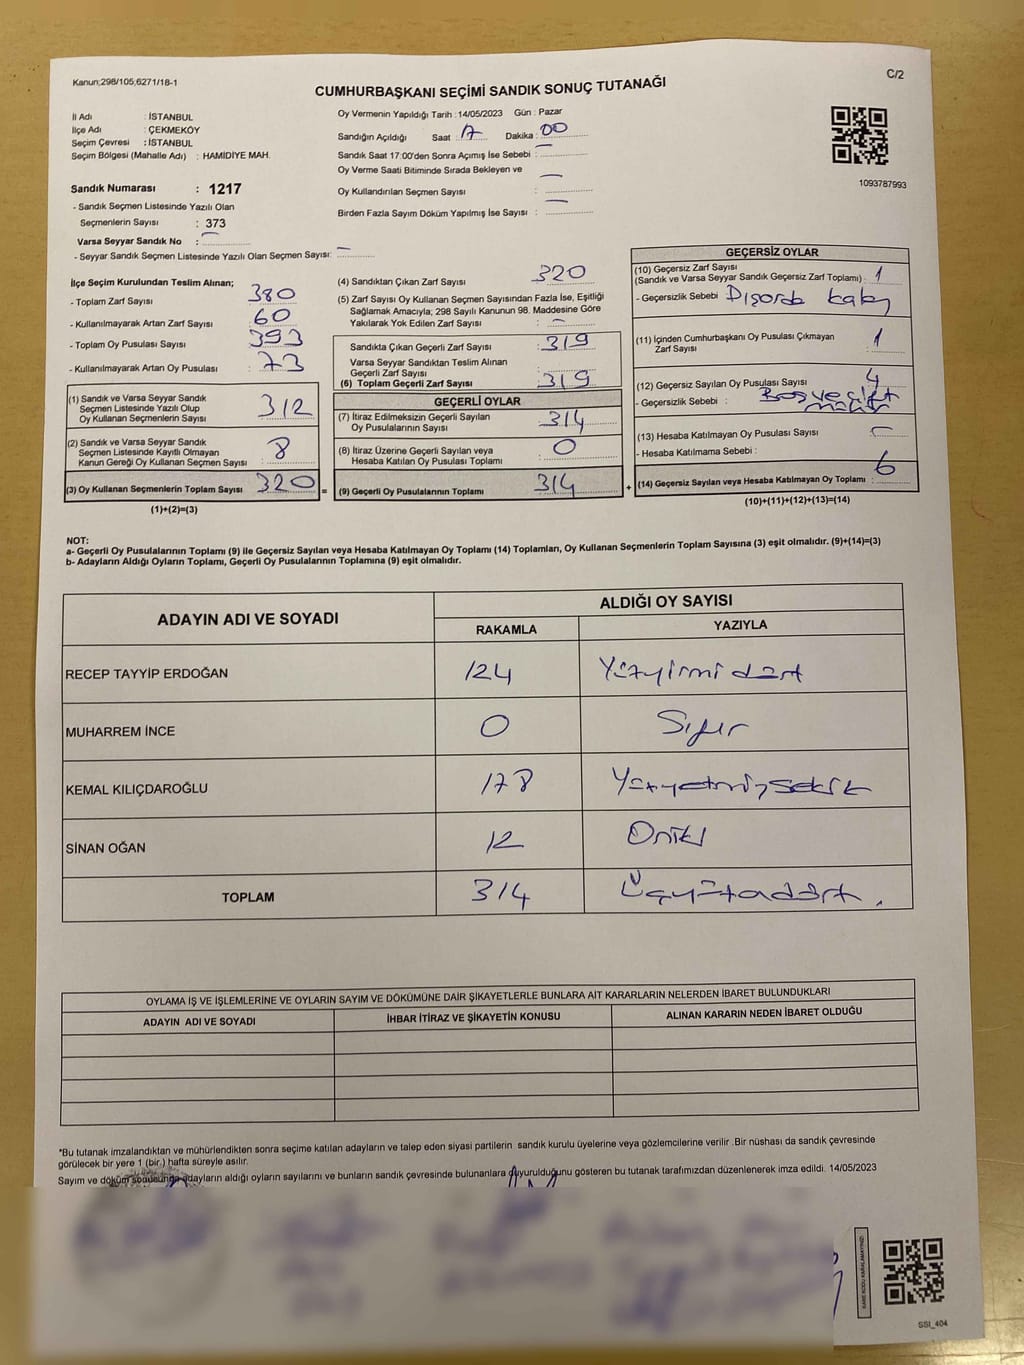 Kanun;298/105,6271/18-1
C/2
CUMHURBAŞKANI SEÇİMİ SANDIK SONUÇ TUTANAĞI
İl Adı : İSTANBUL
İlçe Adı : ÇEKMEKÖY
Seçim Çevresi : İSTANBUL
Seçim Bölgesi (Mahalle Adı) : HAMİDİYE MAH.
Oy Vermenin Yapıldığı Tarih : 14/05/2023 Gün : Pazar
Sandığın Açıldığı Saat : 17 Dakika : 00
Sandık Saat 17:00'den Sonra Açımış İse Sebebi :
Oy Verme Saati Bitiminde Sırada Bekleyen ve
Oy Kullandırılan Seçmen Sayısı :
Birden Fazla Sayım Döküm Yapılmış İse Sayısı :
1093787993
Sandık Numarası : 1217
- Sandık Seçmen Listesinde Yazılı Olan
Seçmenlerin Sayısı : 373
Varsa Seyyar Sandık No :
- Seyyar Sandık Seçmen Listesinde Yazılı Olan Seçmen Sayısı:
İlçe Seçim Kurulundan Teslim Alınan;
- Toplam Zarf Sayısı : 380
- Kullanılmayarak Artan Zarf Sayısı : 60
- Toplam Oy Pusulası Sayısı : 393
- Kullanılmayarak Artan Oy Pusulası : 73
(1) Sandık ve Varsa Seyyar Sandık
Seçmen Listesinde Yazılı Olup
Oy Kullanan Seçmenlerin Sayısı : 312
(2) Sandık ve Varsa Seyyar Sandık
Seçmen Listesinde Kayıtlı Olmayan
Kanun Gereği Oy Kullanan Seçmen Sayısı : 8
(3) Oy Kullanan Seçmenlerin Toplam Sayısı : 320 =
(1)+(2)=(3)
(4) Sandıktan Çıkan Zarf Sayısı : 320
(5) Zarf Sayısı Oy Kullanan Seçmen Sayısından Fazla İse, Eşitliği
Sağlamak Amacıyla; 298 Sayılı Kanunun 98. Maddesine Göre
Yakılarak Yok Edilen Zarf Sayısı :
Sandıkta Çıkan Geçerli Zarf Sayısı : 319
Varsa Seyyar Sandıktan Teslim Alınan
Geçerli Zarf Sayısı :
(6) Toplam Geçerli Zarf Sayısı : 319
GEÇERLİ OYLAR
(7) İtiraz Edilmeksizin Geçerli Sayılan
Oy Pusulalarının Sayısı : 314
(8) İtiraz Üzerine Geçerli Sayılan veya
Hesaba Katılan Oy Pusulası Toplamı : 0
(9) Geçerli Oy Pusulalarının Toplamı : 314 +
GEÇERSİZ OYLAR
(10) Geçersiz Zarf Sayısı
(Sandık ve Varsa Seyyar Sandık Geçersiz Zarf Toplamı) : 1
- Geçersizlik Sebebi : Dışarda
(11) İçinden Cumhurbaşkanı Oy Pusulası Çıkmayan
Zarf Sayısı : 1
(12) Geçersiz Sayılan Oy Pusulası Sayısı : 4
- Geçersizlik Sebebi : Boş ve çift
(13) Hesaba Katılmayan Oy Pusulası Sayısı :
- Hesaba Katılmama Sebebi :
(14) Geçersiz Sayılan veya Hesaba Katılmayan Oy Toplamı : 6
(10)+(11)+(12)+(13)=(14)
NOT:
a- Geçerli Oy Pusulalarının Toplamı (9) ile Geçersiz Sayılan veya Hesaba Katılmayan Oy Toplamı (14) Toplamları, Oy Kullanan Seçmenlerin Toplam Sayısına (3) eşit olmalıdır. (9)+(14)=(3)
b- Adayların Aldığı Oyların Toplamı, Geçerli Oy Pusulalarının Toplamına (9) eşit olmalıdır.
ADAYIN ADI VE SOYADI
ALDIĞI OY SAYISI
RAKAMLA YAZIYLA
RECEP TAYYİP ERDOĞAN 124 Yüzyirmi dört
MUHARREM İNCE 0 Sıfır
KEMAL KILIÇDAROĞLU 178 Yüzyetmişsekiz
SİNAN OĞAN 12 Oniki
TOPLAM 314 Üçyüzondört
OYLAMA İŞ VE İŞLEMLERİNE VE OYLARIN SAYIM VE DÖKÜMÜNE DAİR ŞİKAYETLERLE BUNLARA AİT KARARLARIN NELERDEN İBARET BULUNDUKLARI
ADAYIN ADI VE SOYADI İHBAR İTİRAZ VE ŞİKAYETİN KONUSU ALINAN KARARIN NEDEN İBARET OLDUĞU
*Bu tutanak imzalandıktan ve mühürlendikten sonra seçime katılan adayların ve talep eden siyasi partilerin sandık kurulu üyelerine veya gözlemcilerine verilir .Bir nüshası da sandık çevresinde
görülecek bir yere 1 (bir) hafta süreyle asılır.
Sayım ve döküm sonucunda adayların aldığı oyların sayılarını ve bunların sandık çevresinde bulunanlara duyurulduğunu gösteren bu tutanak tarafımızdan düzenlenerek imza edildi. 14/05/2023
KARE KODU KARALAMAYINIZ!
SSI_404